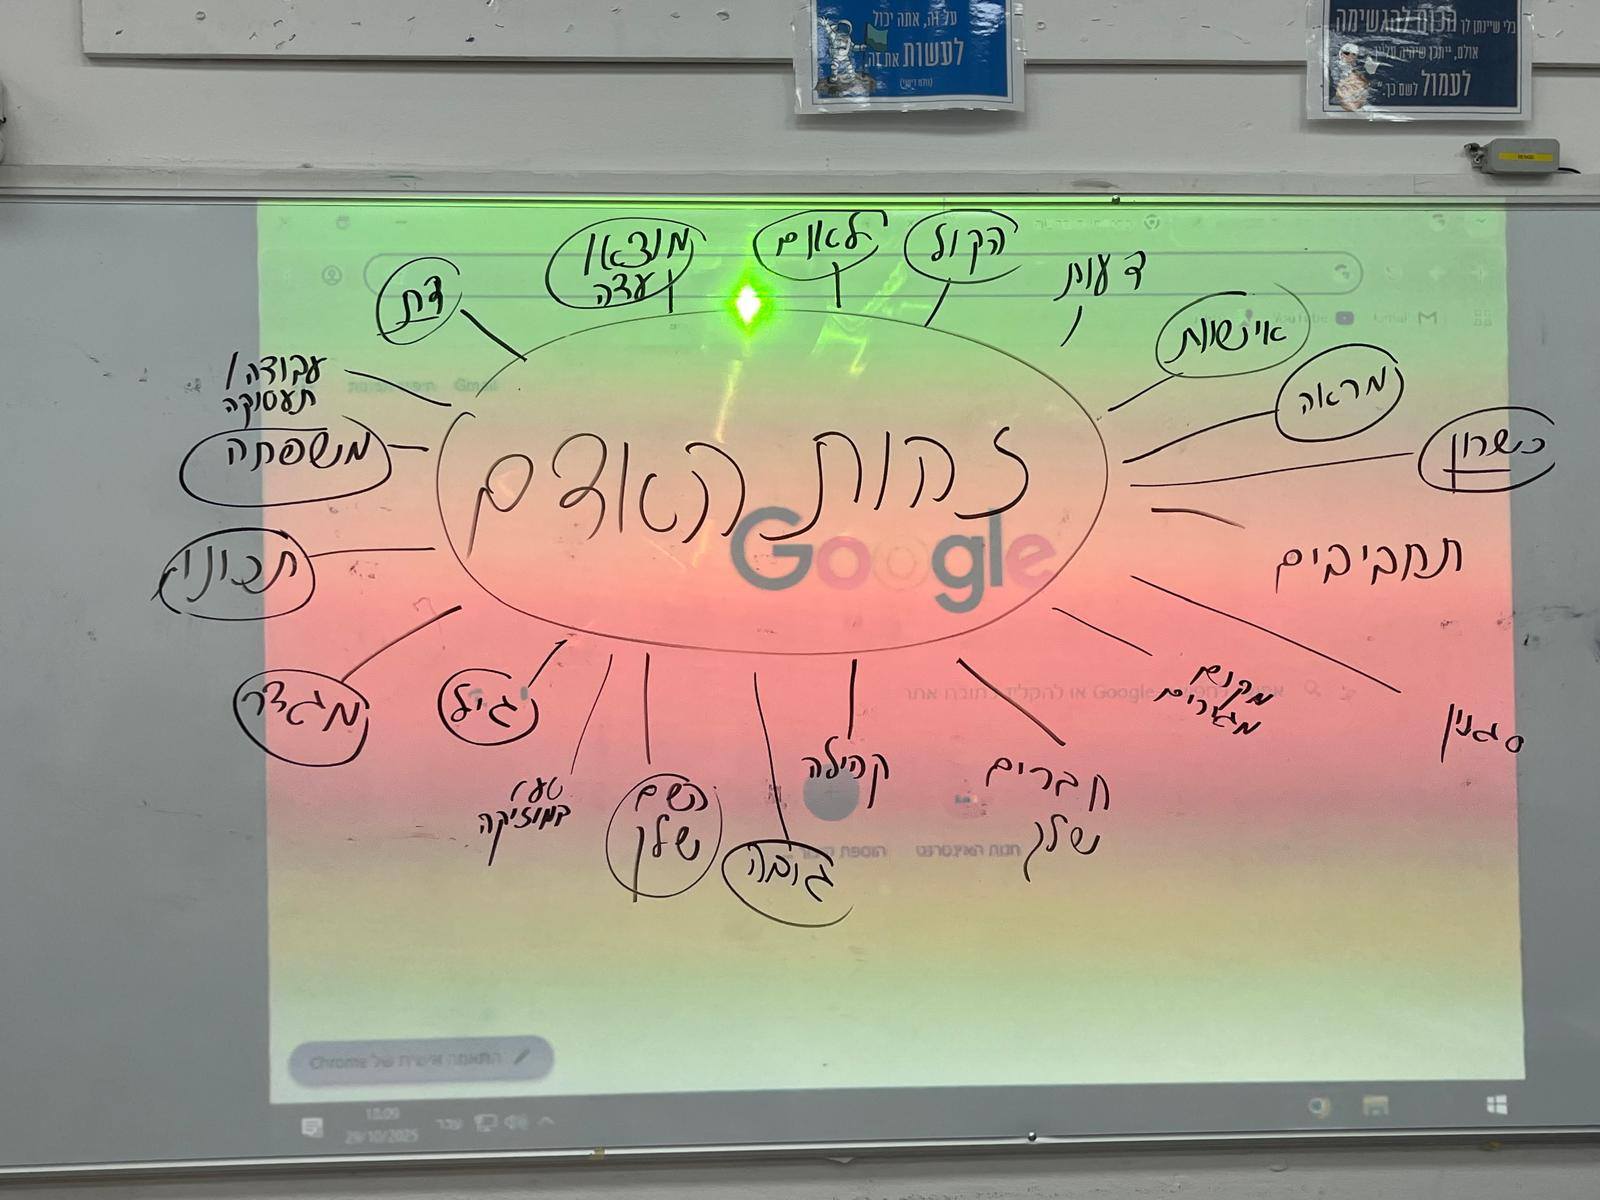 על זה, אתה יכול
לעשות את זה.
הכוח להגשימה
אולם, ייתכן שיהיה עליך
לעמול לשם כך."
הקול
לאום
מוצא/
עדה
דעות
דת
אישיות
YouTube
Gmail
עבודה/
תעסוקה
מראה
משפחה
כישרון
זהות האדם
Google
תכונות
תחביבים
מגדר
גיל
מקום
מגורים
סגנון
קהילה
חברים
שלך
טעם
במוזיקה
השם
שלך
גובה
חנות האינטרנט
התאמה אישית של Chrome
עבר
18:09
29/10/2025